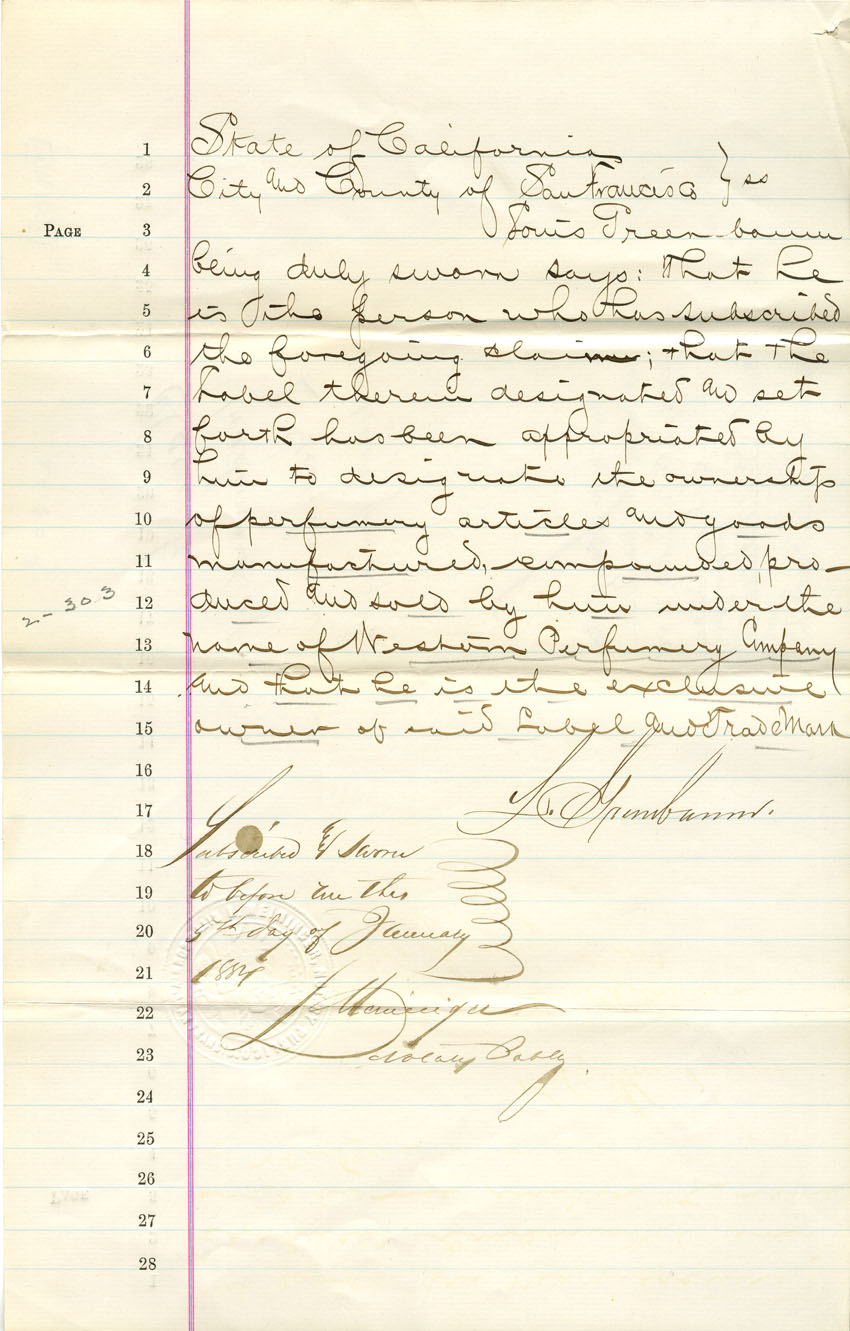 1 State of California
2 City and County of San Francisco } ss
PAGE 3 Louis Greenbaum
4 being duly sworn says: That he
5 is the person who has subscribed
6 the foregoing claim; that the
7 Label therein designated and set
8 forth has been appropriated by
9 him to designate the ownership
10 of perfumery articles and goods
11 manufactured, compounded, pro-
2-303 12 duced and sold by him under the
13 name of Western Perfumery Company
14 and that he is the exclusive
15 owner of said Label and Trade Mark
16
17 L. Greenbaum.
18 Subscribed & sworn
19 to before me this
20 5th day of January
21 1884
22
23 Notary Public
24
25
26
27
28